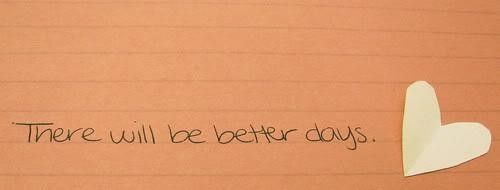 There will be better days.